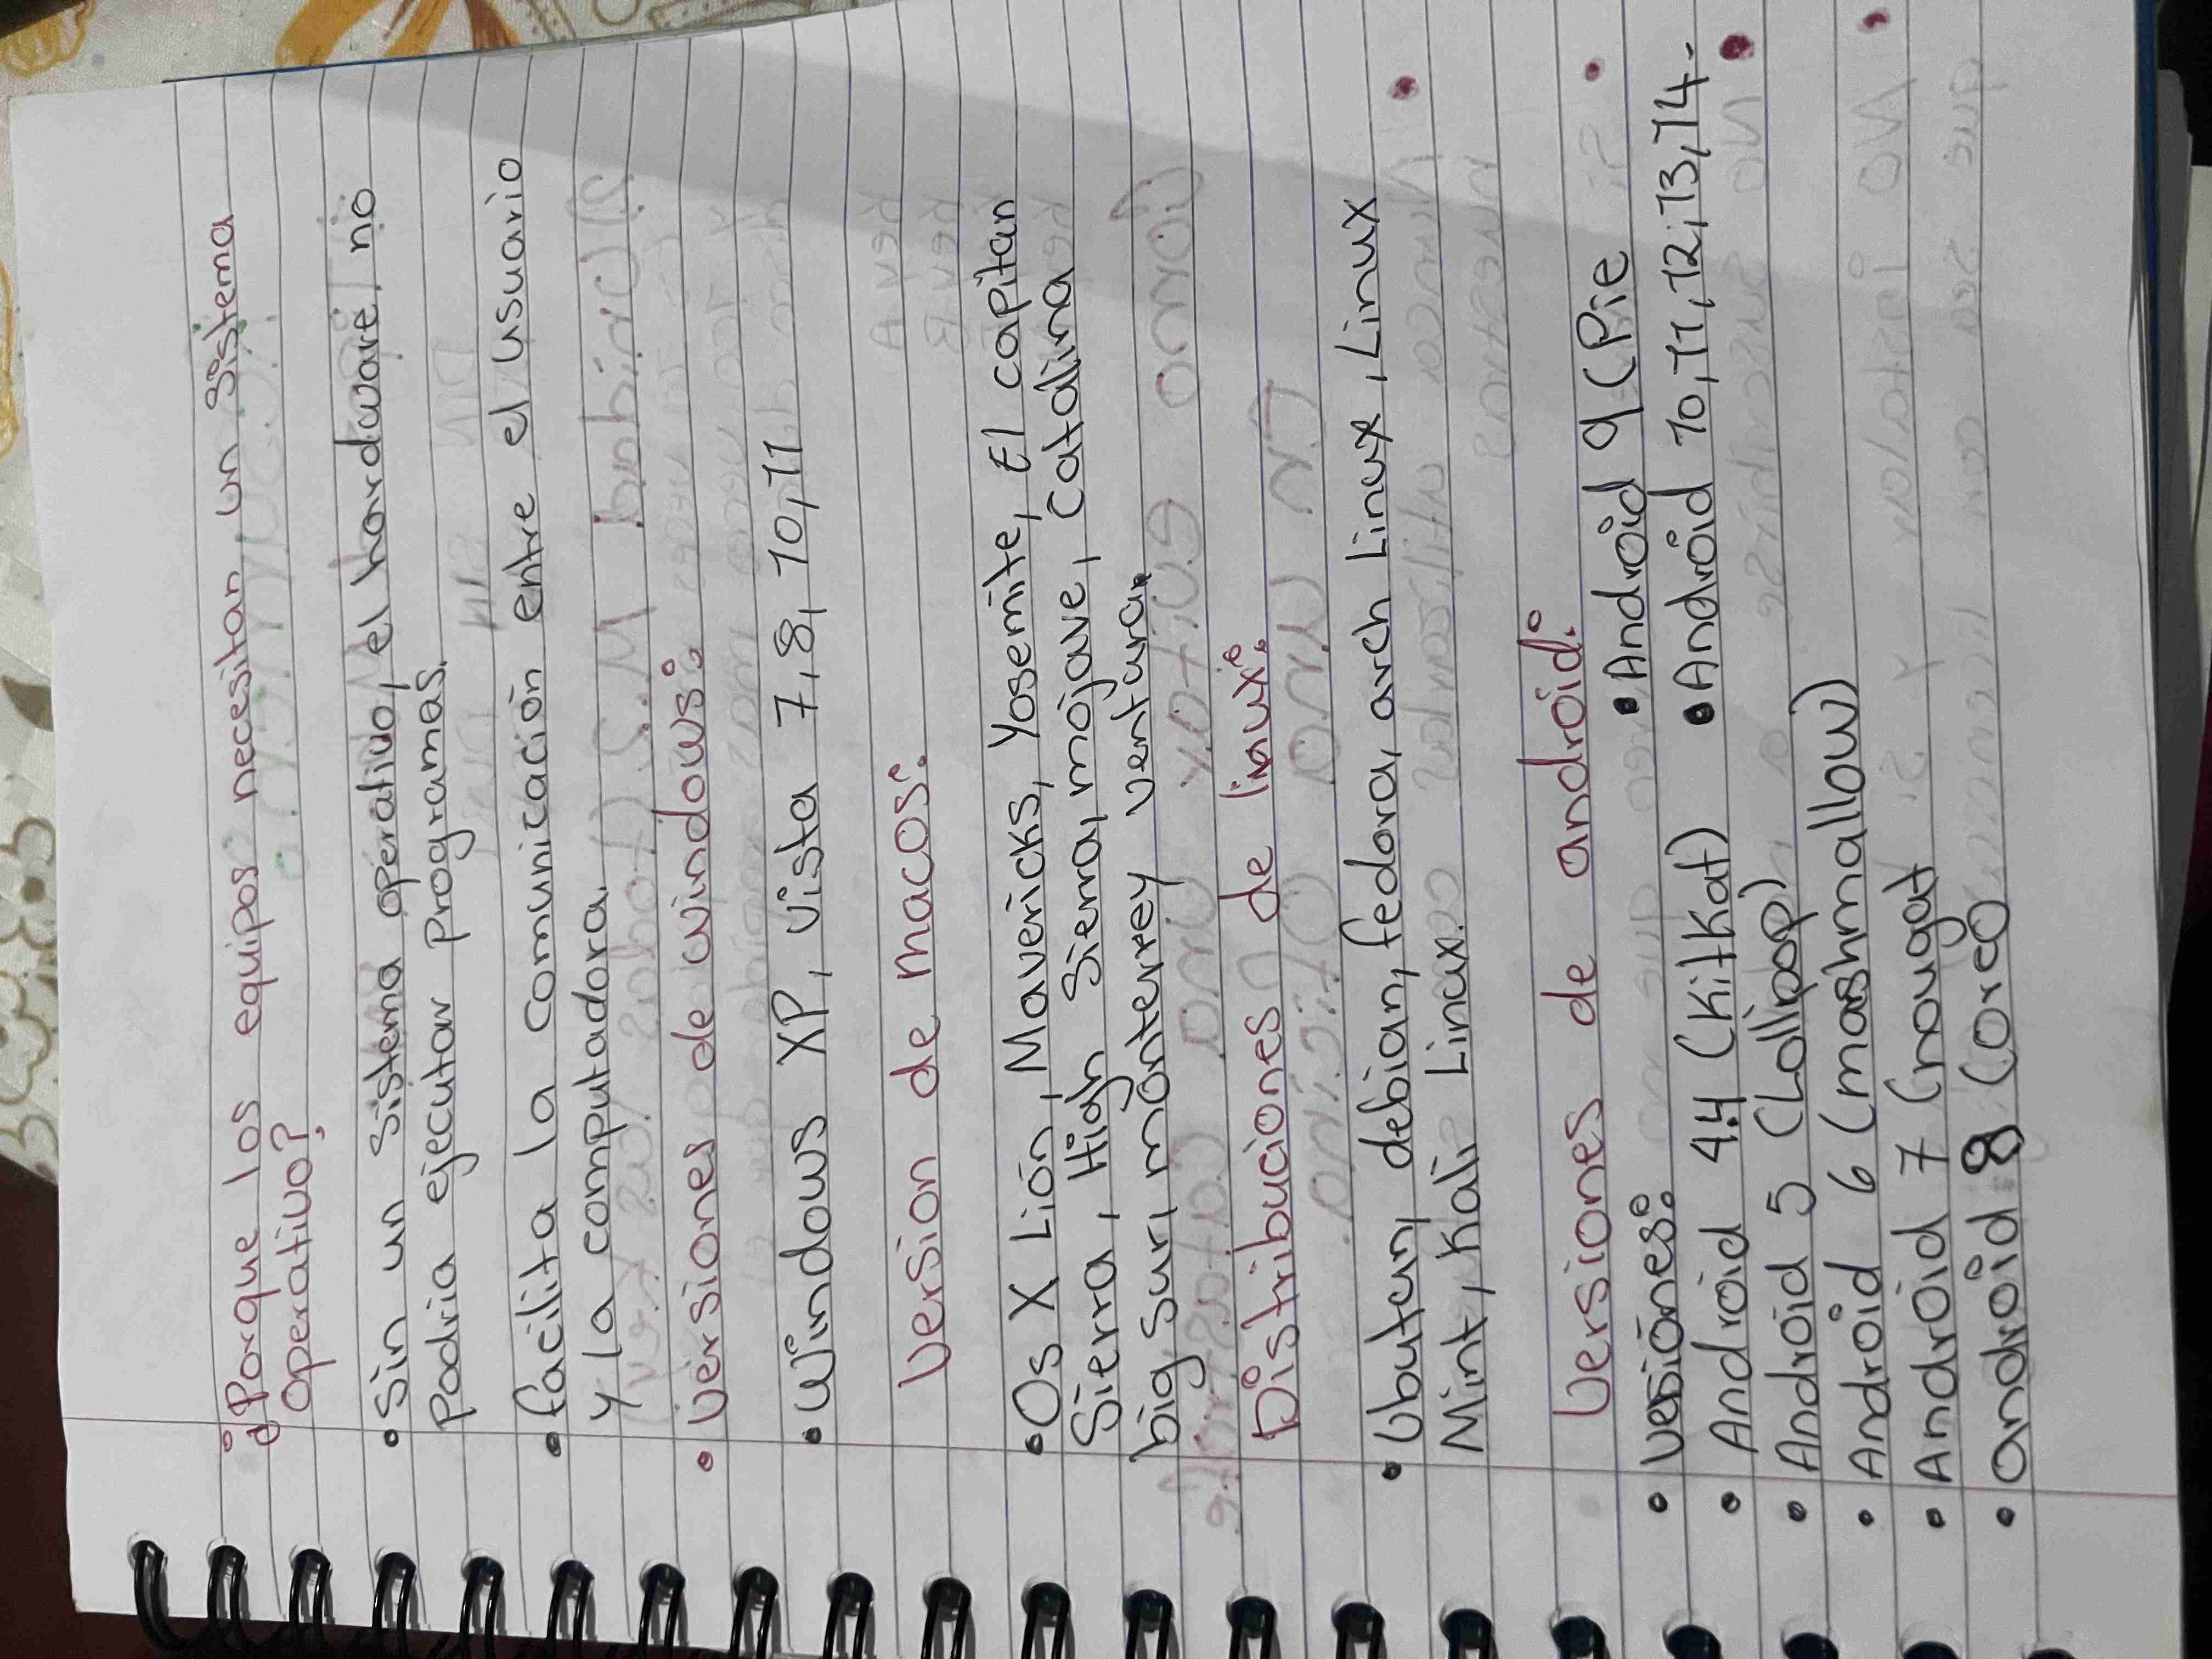 ¿Porque los equipos necesitan un sistema
operativo?
• Sin un sistema operativo, el hardware, no
Podria ejecutar programas.
• facilita la comunicación entre el usuario
y la computadora.
• Versiones de windows:
• Windows XP, Vista 7, 8, 10, 11
Version de macos:
• Os X Lion, Mavericks, Yosemite, El capitan
Sierra, High Sierra, mojave, catalina
big sur, monterrey ventura.
Distribuciones de linux:
• Ubutun, debian, fedora, arch Linux, Linux
Mint, Kali Linux.
Versiones de android:
• Versiones:
• Android 4.4 (KitKat)
• Android 5 (Lollipop)
• Android 6 (mashmallow)
• Android 7 (nougat
• android 8 (oreo
• Android 9 (Pie
• Android 10, 11, 12, 13, 14.